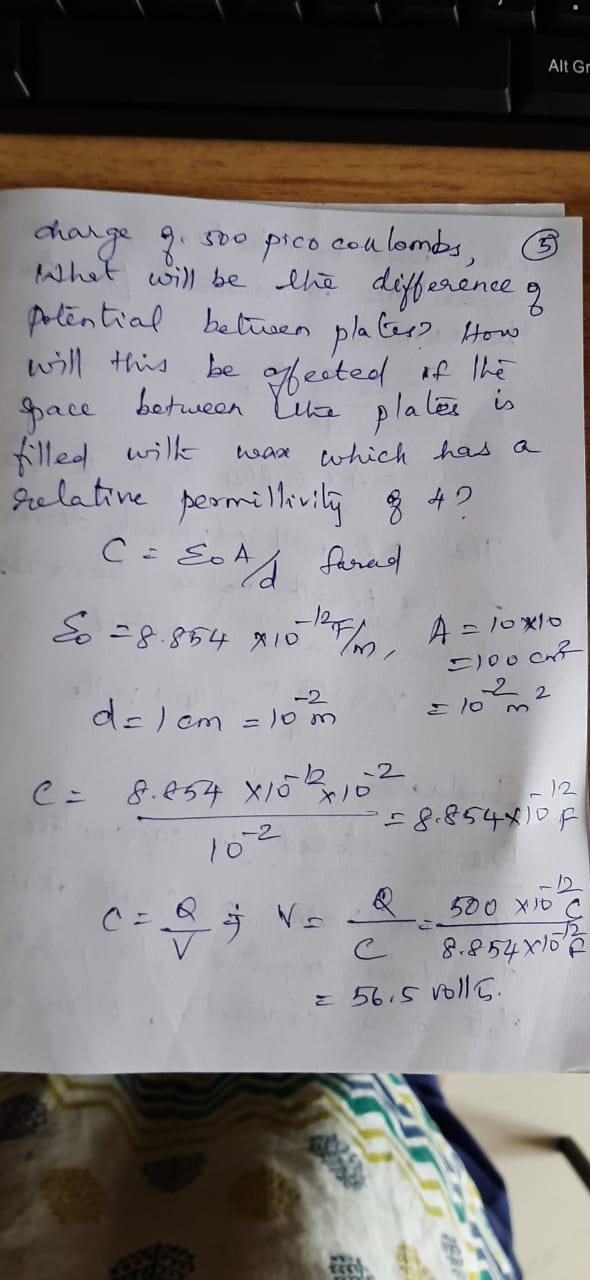 Alt Gr
charge of 500 pico coulombs, ⑤
What will be the difference of
potential between plates? How
will this be affected if the
space between the plates is
filled with wax which has a
relative permittivity of 4?
C = ε₀A/d farad
ε₀ = 8.854 × 10⁻¹² F/m, A = 10×10
= 100 cm²
d = 1 cm = 10⁻² m = 10⁻² m²
C = 8.854 × 10⁻¹² × 10⁻² / 10⁻² = 8.854×10⁻¹² F
C = Q/V ; V = Q/C = 500 × 10⁻¹² C / 8.854×10⁻¹² F
= 56.5 volts.